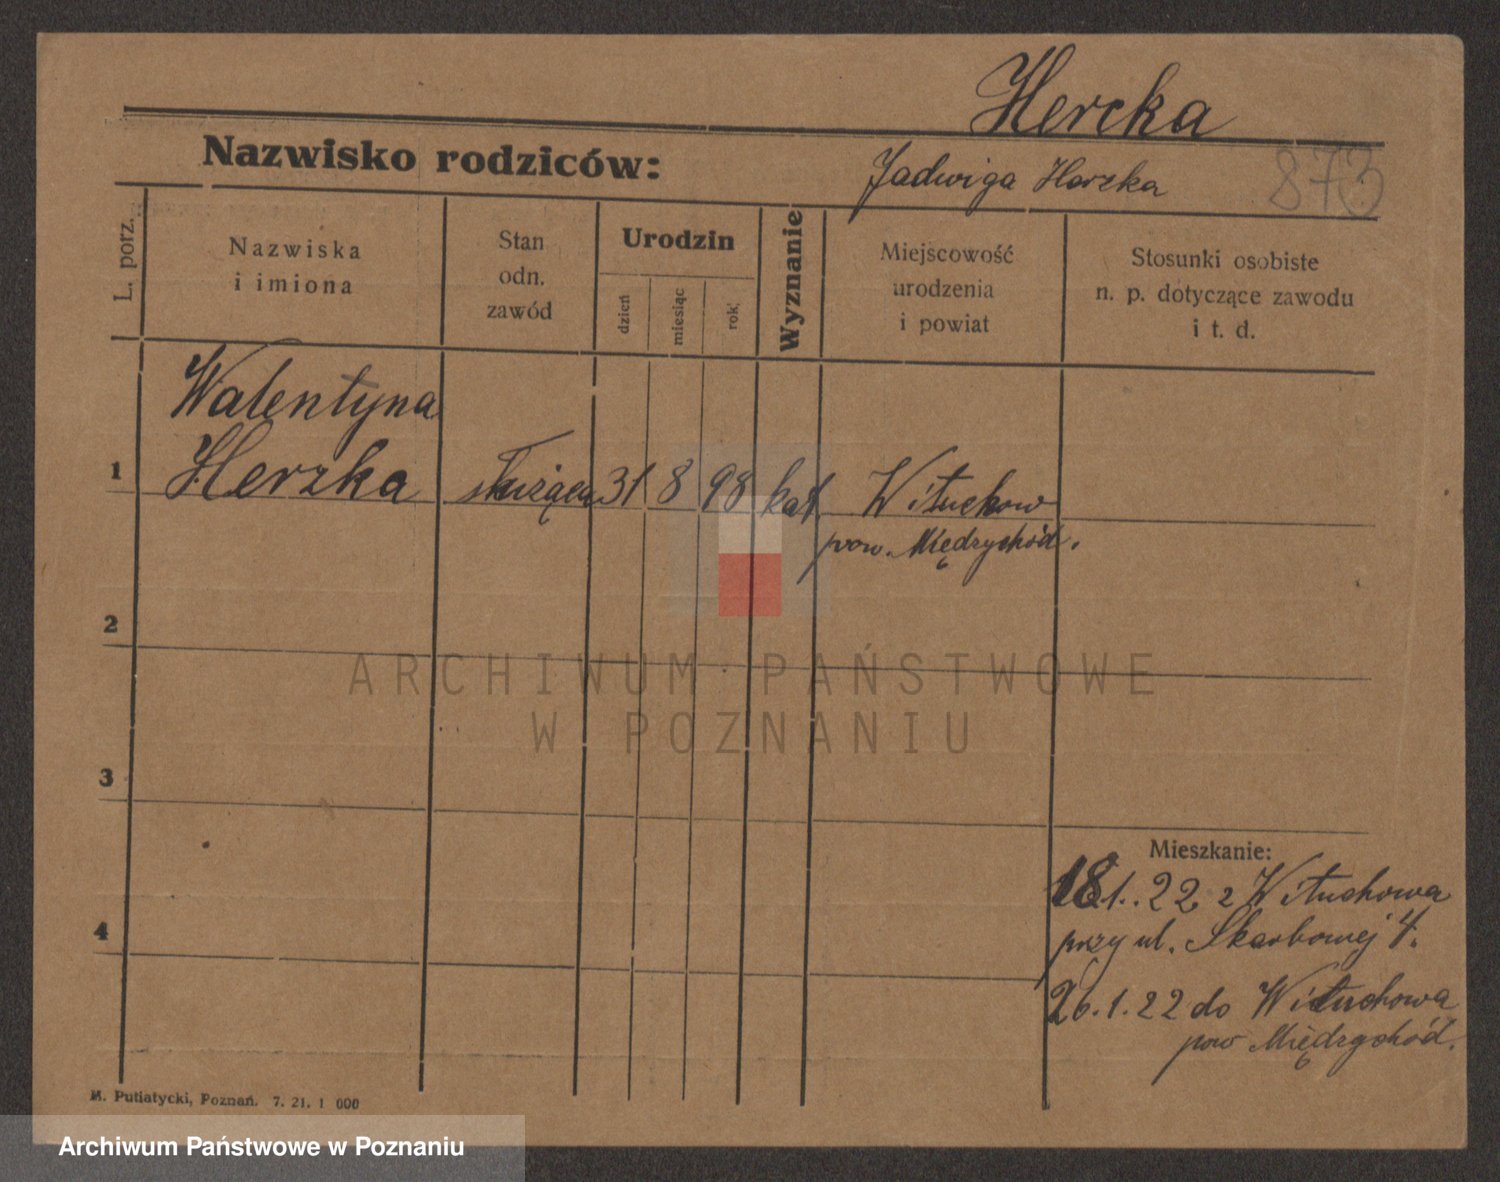 Hercka
Nazwisko rodziców:
Jadwiga Herzka
873
L. porz.
Nazwiska
i imiona
Stan
odn.
zawód
Urodzin
dzień
miesiąc
rok
Wyznanie
Miejscowość
urodzenia
i powiat
Stosunki osobiste
n. p. dotyczące zawodu
i t. d.
Walentyna
1 Herzka służąca 31 8 98 kat Wituchow
pow. Międzychód.
2
ARCHIWUM PAŃSTWOWE
W POZNANIU
3
Mieszkanie:
18.1.22 z Wituchowa
4 przy ul. Skarbowej 4.
26.1.22 do Wituchowa
pow Międzychód.
M. Putiatycki, Poznań. 7. 21. 1 000
Archiwum Państwowe w Poznaniu